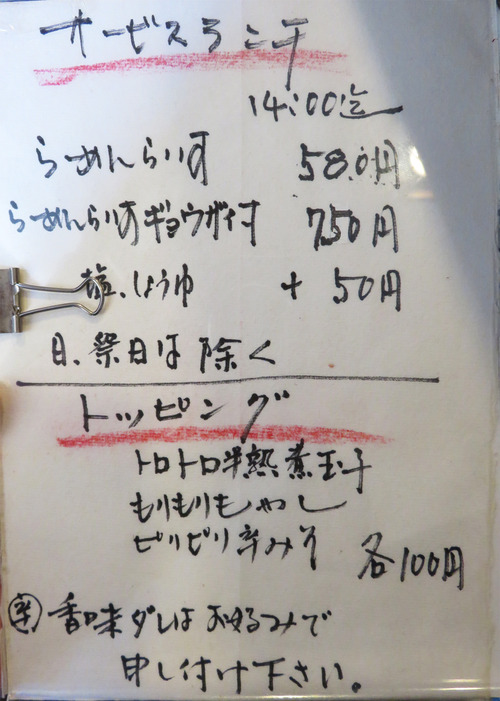 サービスランチ
14:00迄
らーめんらいす 580円
らーめんらいすギョウザ付 750円
塩、しょうゆ +50円
日、祭日は除く
トッピング
トロトロ半熟煮玉子
もりもりもやし
ピリピリ辛みそ
各100円
辛 香味ダレはお好みで
申し付け下さい。